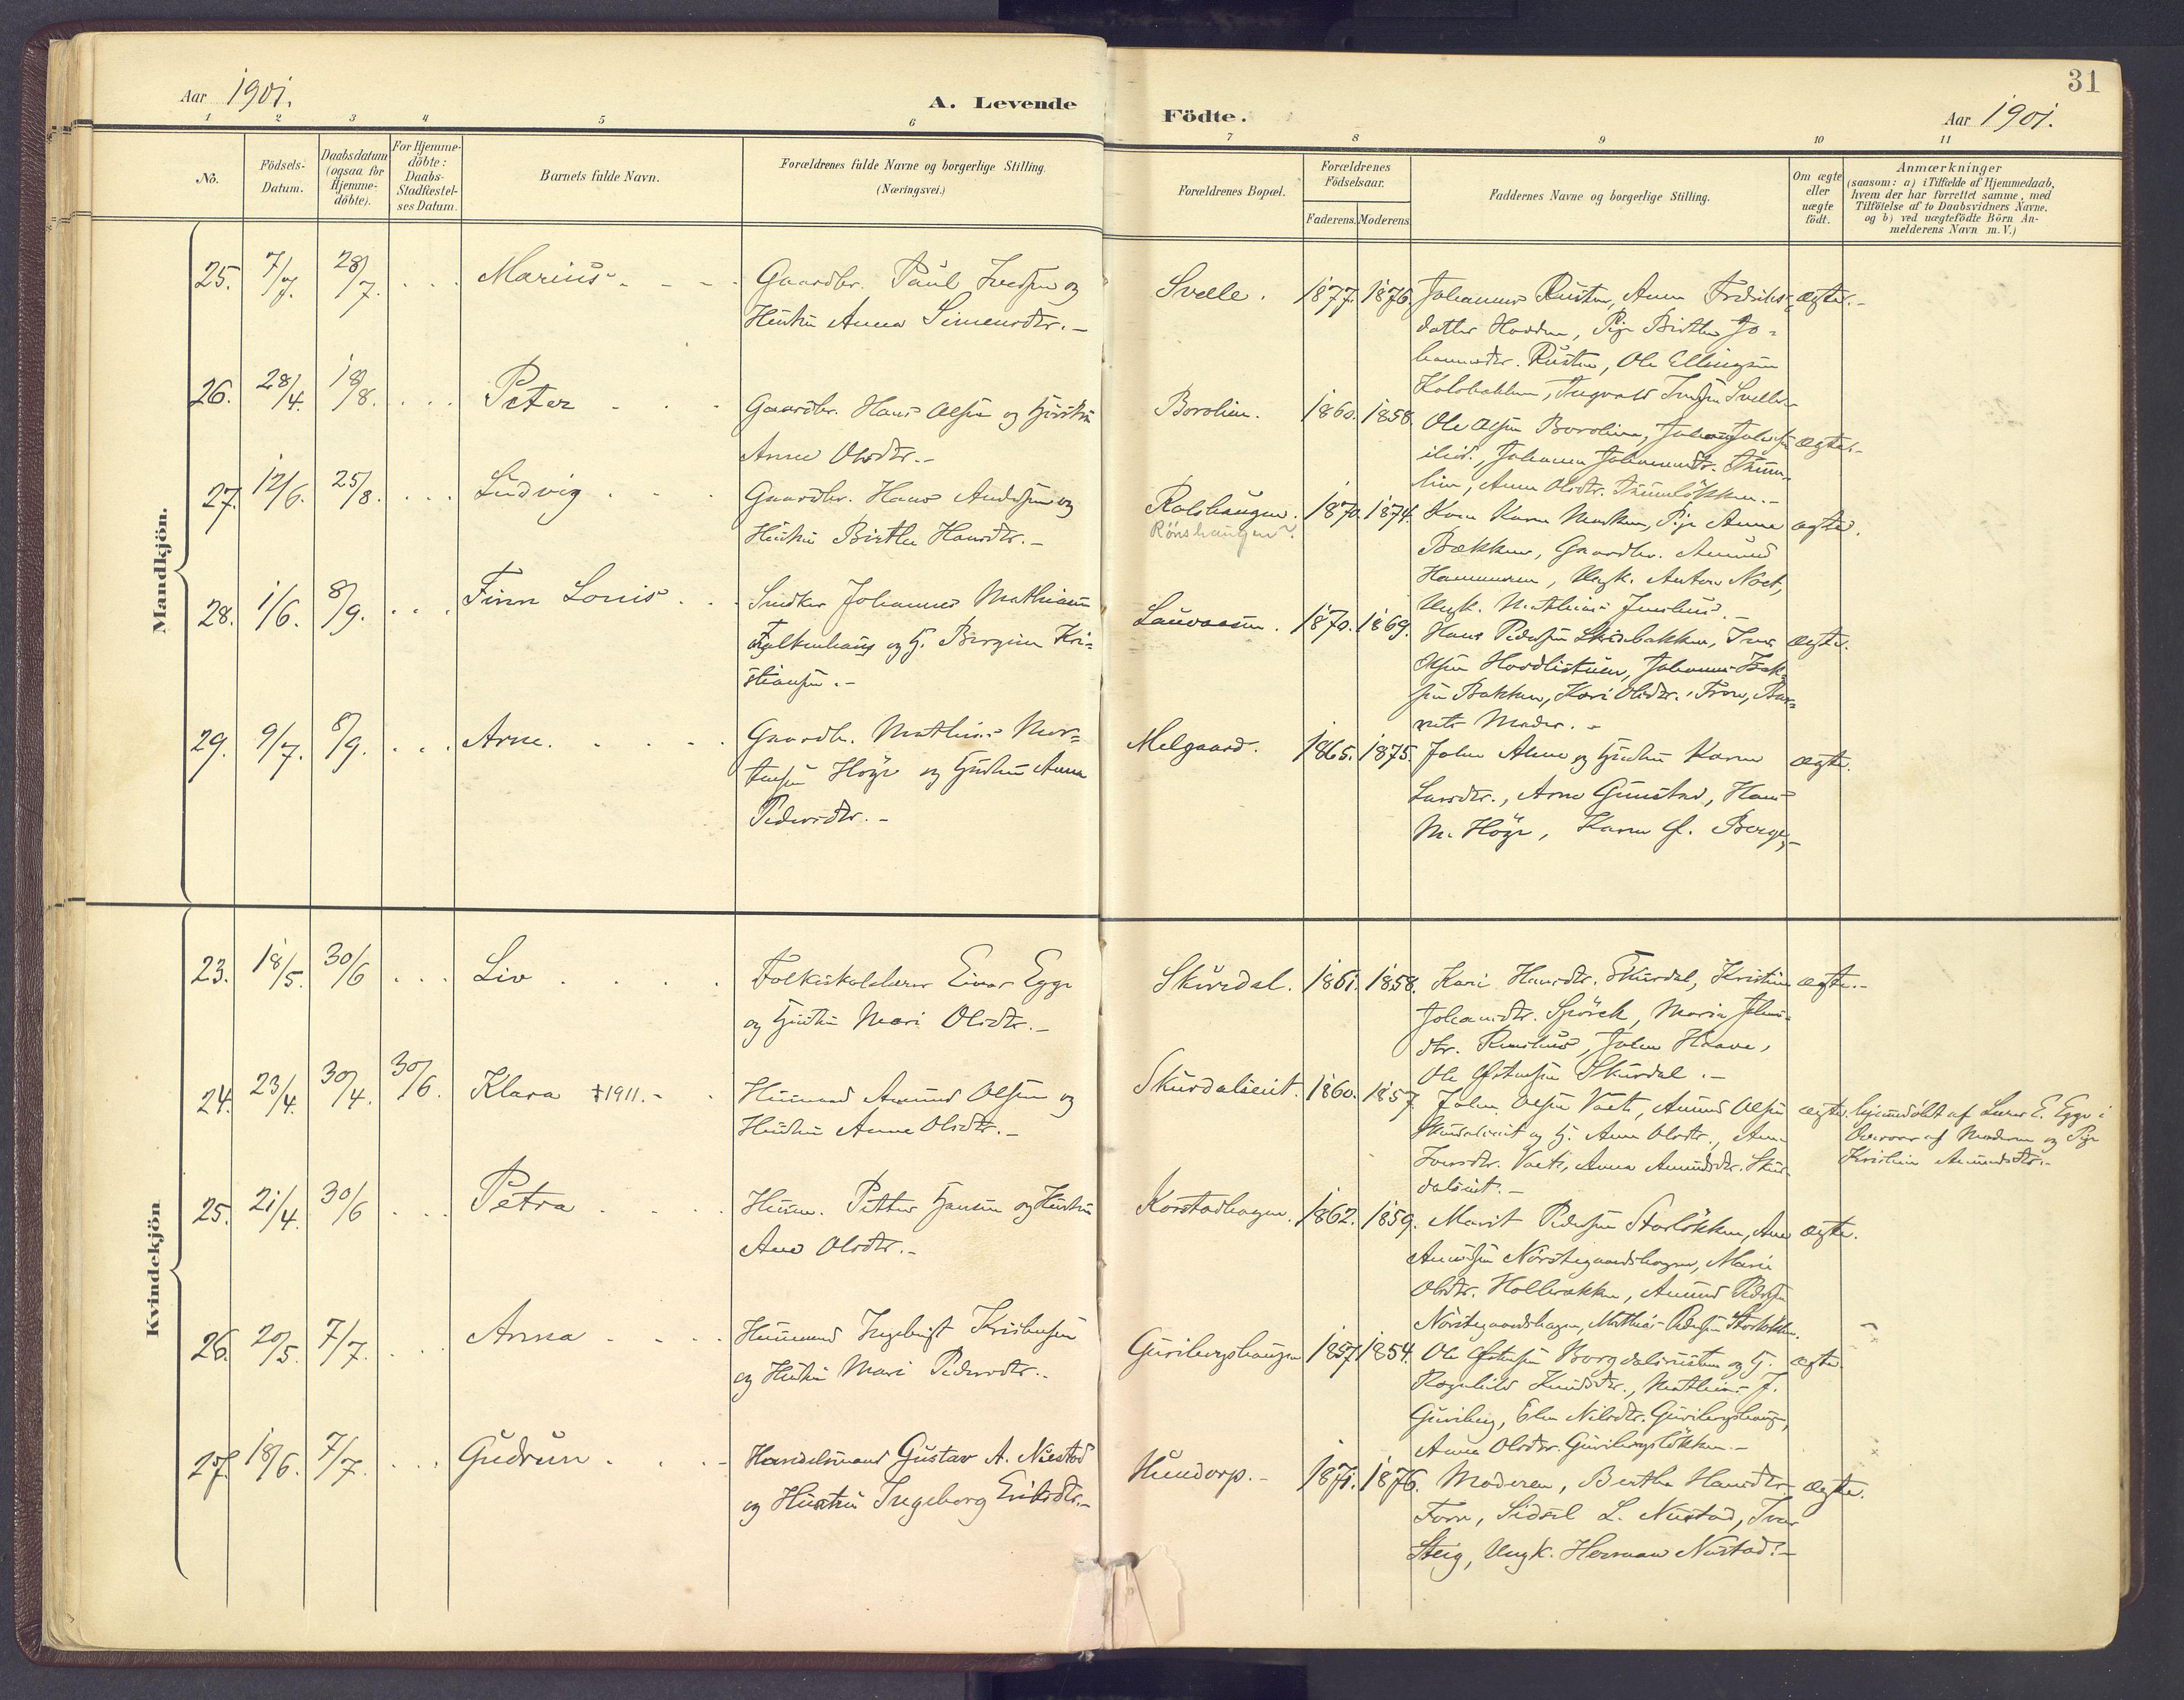 31
Aar 1901.
A. Levende
Födte.
Aar 1901.
1 2 3 4 5 6 7 8 9 10 11
No.
Födsels-
Datum.
Daabsdatum
(ogsaa for
Hjemme-
döbte).
For Hjemme-
döbte:
Daabs-
Stadfæstel-
ses Datum.
Barnets fulde Navn.
Forældrenes fulde Navne og borgerlige Stilling.
(Næringsvei.)
Forældrenes Bopæl.
Forældrenes
Födselsaar.
Faderens. Moderens.
Faddernes Navne og borgerlige Stilling.
Om ægte
eller
uægte
födt.
Anmærkninger
(saasom: a) i Tilfælde af Hjemmedaab,
hvem der har forrettet samme, med
Tilföielse af to Daabsvidners Navne.
og b) ved uægtefödte Börn An-
melderens Navn m.V.)
Mandkjön.
25. 7/7. 28/7. Marius
Gaardbr. Paul Iversen og
Hustru Anna Simensdtr.
Svelle. 1877. 1876.
Johannes Rusten, Anne Fredriks-
datter Hovden, Pige Birthe Jo-
hannesdtr. Rusten, Ole Ellingsen
Kolobakken, Ingvald Svelle
ægte.
26. 28/4. 18/8. Peter
Gaardbr. Hans Olsen og Hustru
Anne Olsdtr.
Borolien. 1860. 1858.
Ole Olsen Borolien,
ibid., Johanne Johannesdtr.
lien, Anne Olsdtr.
ægte.
27. 12/6. 25/8. Ludvig
Gaardbr. Hans Andersen og
Hustru Birthe Hansdtr.
Rolshaugen.
Rönshaugen?
1870. 1874.
Kone Karen Moshus, Pige Anne
Bækken, Gaardbr. Amund
Hammeren, Ungk. Anton
Ungk. Mathias
ægte.
28. 1/6. 8/9. Finn Louis
Snedker Johannes Mathiasen
Falkenhaug og H. Bergine Kri-
stiansen.
Lauvaasen. 1870. 1869.
Hans Pedersen Skredbakken, Iver
Olsen Hovdlistuen, Johannes
Bakken, Kari Olsdtr. Fron, Bar-
nets Moder.
ægte.
29. 9/7. 8/9. Arne.
Gaardb. Mathias Mor-
tensen Höge og Hustru Anna
Pedersdtr.
Melgaard. 1865. 1875.
John Alme og Hustru Karen
Larsdtr., Arne Gunstad, Hans
M. Höge, Karen Berge
ægte.
Kvindekjön
23. 18/5. 30/6 Liv
Folkeskolelærer Einar Egge
og Hustru Mari Olsdtr.
Skurdal. 1861. 1858.
Kari Hansdtr. Skurdal, Kristine
Johansdtr. Spörck, Maria Johns-
dtr. John Haave,
Ole Östensen Skurdal.
ægte.
24. 23/4. 30/4. 30/6. Klara †1911.
Huusmand Amund Olsen og
Hustru Anne Olsdtr.
Skurdalseiet. 1860. 1857.
John Olsen Amund Olsen
Skurdalseiet og H. Anne Olsdtr., Anne
Iversdtr. Anna Amundsdtr. Skur-
dalseiet.
ægte.
hjemmedöbt af Lærer E. Egge i
Overvær af Moderen og Pige
Kristine Amundsdtr.
25. 21/4. 30/6 Petra
Huusm. Petter Hansen og Hustru
Ane Olsdtr.
Korstadhagen. 1862. 1859.
Marit Pedersen Storlökken, Ane
Amundsen Nörstegaardshagen, Marie
Olsdtr. Amund Pedersen
Nörstegaardshagen, Mathias Pedersen Storlökken.
ægte.
26. 20/5. 7/7. Anna
Huusmand Ingebrigt Kristensen
og Hustru Mari Pedersdtr.
Guribergshaugen 1857. 1854.
Ole Östensen og H.
Ragnhild Knudsdtr., Mathias J.
Guriberg, Elen Nilsdtr. Guribergshaug,
Anna Olsdtr. Guribergslökken.
ægte.
27. 18/6. 7/7. Gudrun
Handelsmand Gustav A. Nustad
og Hustru Ingeborg Eriksdtr.
Hundorp. 1871. 1876.
Moderen, Berthe Hansdtr.
Forr, Sidsel L. Nustad, Ivar
Steig, Ungk. Herman Nustad.
ægte.